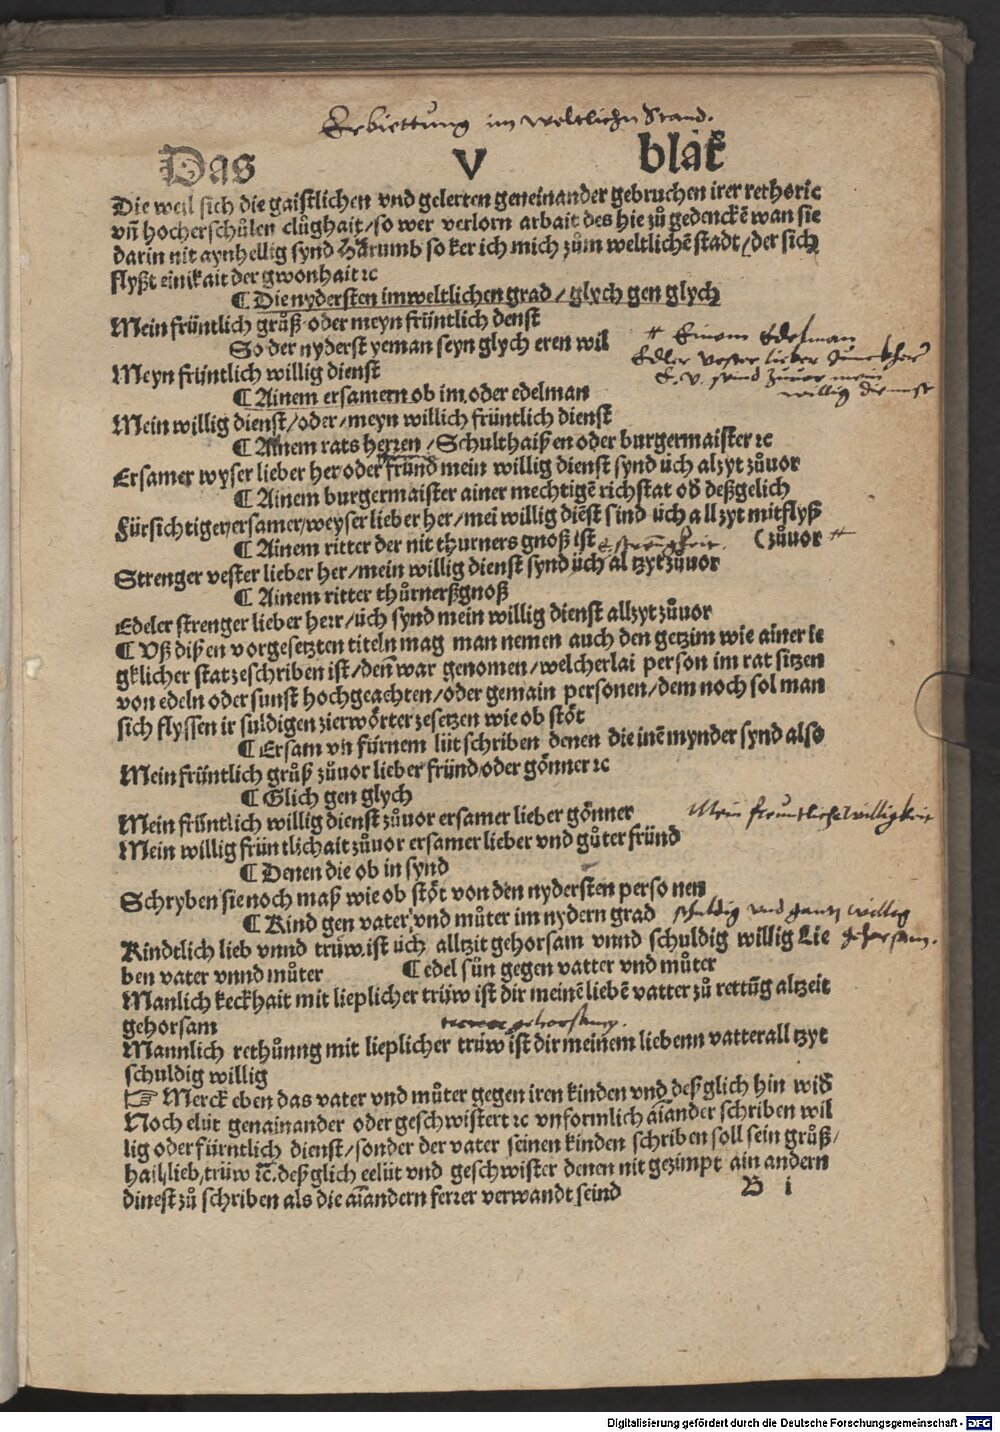 Erbiettung im weltlichn Stand.
Das V blat
Die weil sich die gaistlichen vnd gelerten geneinander gebruchen irer rethoric
vn̄ hocherschůlen clůghait/so wer verlorn arbait des hie zů gedenckē wan sie
darin nit aynhellig synd Harumb so ker ich mich zům weltlichē stadt/der sich
flyßt einikait der gwonhait ⁊c
¶ Die nydersten im weltlichen grad/glych gen glych
Mein früntlich grůß oder meyn früntlich denst
So der nyderst yeman seyn glych eren wil
Meyn früntlich willig dienst
# Einem Edelman
Edler vester lieber Junckher
E. v. seind zuuor mein
willig dienst
¶ Ainem ersamern ob im oder edelman
Mein willig dienst/oder/meyn willich früntlich dienst
¶ Ainem rats herren/Schulthaißen oder burgermaister ⁊c
Ersamer wyser lieber her oder fründ mein willig dienst synd üch alzyt zůuor
¶ Ainem burgermaister ainer mechtigē richstat od deßgelich
Fürsichtiger/ersamer/weyser lieber her/mei willig diēst sind üch allzyt mitflyß
¶ Ainem ritter der nit thurners gnoß ist (zůuor #
Strenger vester lieber her/mein willig dienst synd üch al tzyt zůuor
¶ Ainem ritter thůrnerßgnoß
Edeler strenger lieber herr/üch synd mein willig dienst allzyt zůuor
¶ Vß dißen vorgesetzten titeln mag man nemen auch den getzim wie ainer ie
gklicher stat zeschriben ist/den̄ war genomen/welcherlai person im rat sitzen
von edeln oder sunst hochgeachten/oder gemain personen/dem noch sol man
sich flyssen ir suldigen zierwörter zesetzen wie ob stöt
¶ Ersam vn̄ fürnem lüt schriben denen die inē mynder synd also
Mein früntlich grůß zůuor lieber fründ/oder gönner ⁊c
¶ Glich gen glych
Mein früntlich willig dienst zůuor ersamer lieber gönner
Mein freuntliche willigkeit
Mein willig früntlichait zůuor ersamer lieber vnd gůter fründ
¶ Denen die ob in synd
Schryben sie noch maß wie ob stöt von den nydersten perso nen
¶ Kind gen vater vnd můter im nydern grad
schuldig vnd gantz willig
gehorsam.
Kindtlich lieb vnnd trüw ist üch alltzit gehorsam vnnd schuldig willig Lie
ben vater vnnd můter ¶ edel sün gegen vatter vnd můter
Manlich keckhait mit lieplicher trüw ist dir meinē liebē vatter zů rettūg altzeit
gehorsam
gehorsam.
Mannlich rethůnng mit lieplicher trüw ist dir meinem liebenn vatter all tzyt
schuldig willig
☞ Merck eben das vater vnd můter gegen iren kinden vnd deßglich hin wid
Noch elüt genainander oder geschwistert ⁊c vnformlich aīander schriben wil
lig oder fürntlich dienst/sonder der vater seinen kinden schriben soll sein grůß/
hail,lieb,trüw ⁊c. deßglich eelüt vnd geschwister denen nit gezimpt ain andern
dinest zů schriben als die aīandern ferrer verwandt seind
B i
Digitalisierung gefördert durch die Deutsche Forschungsgemeinschaft - DFG